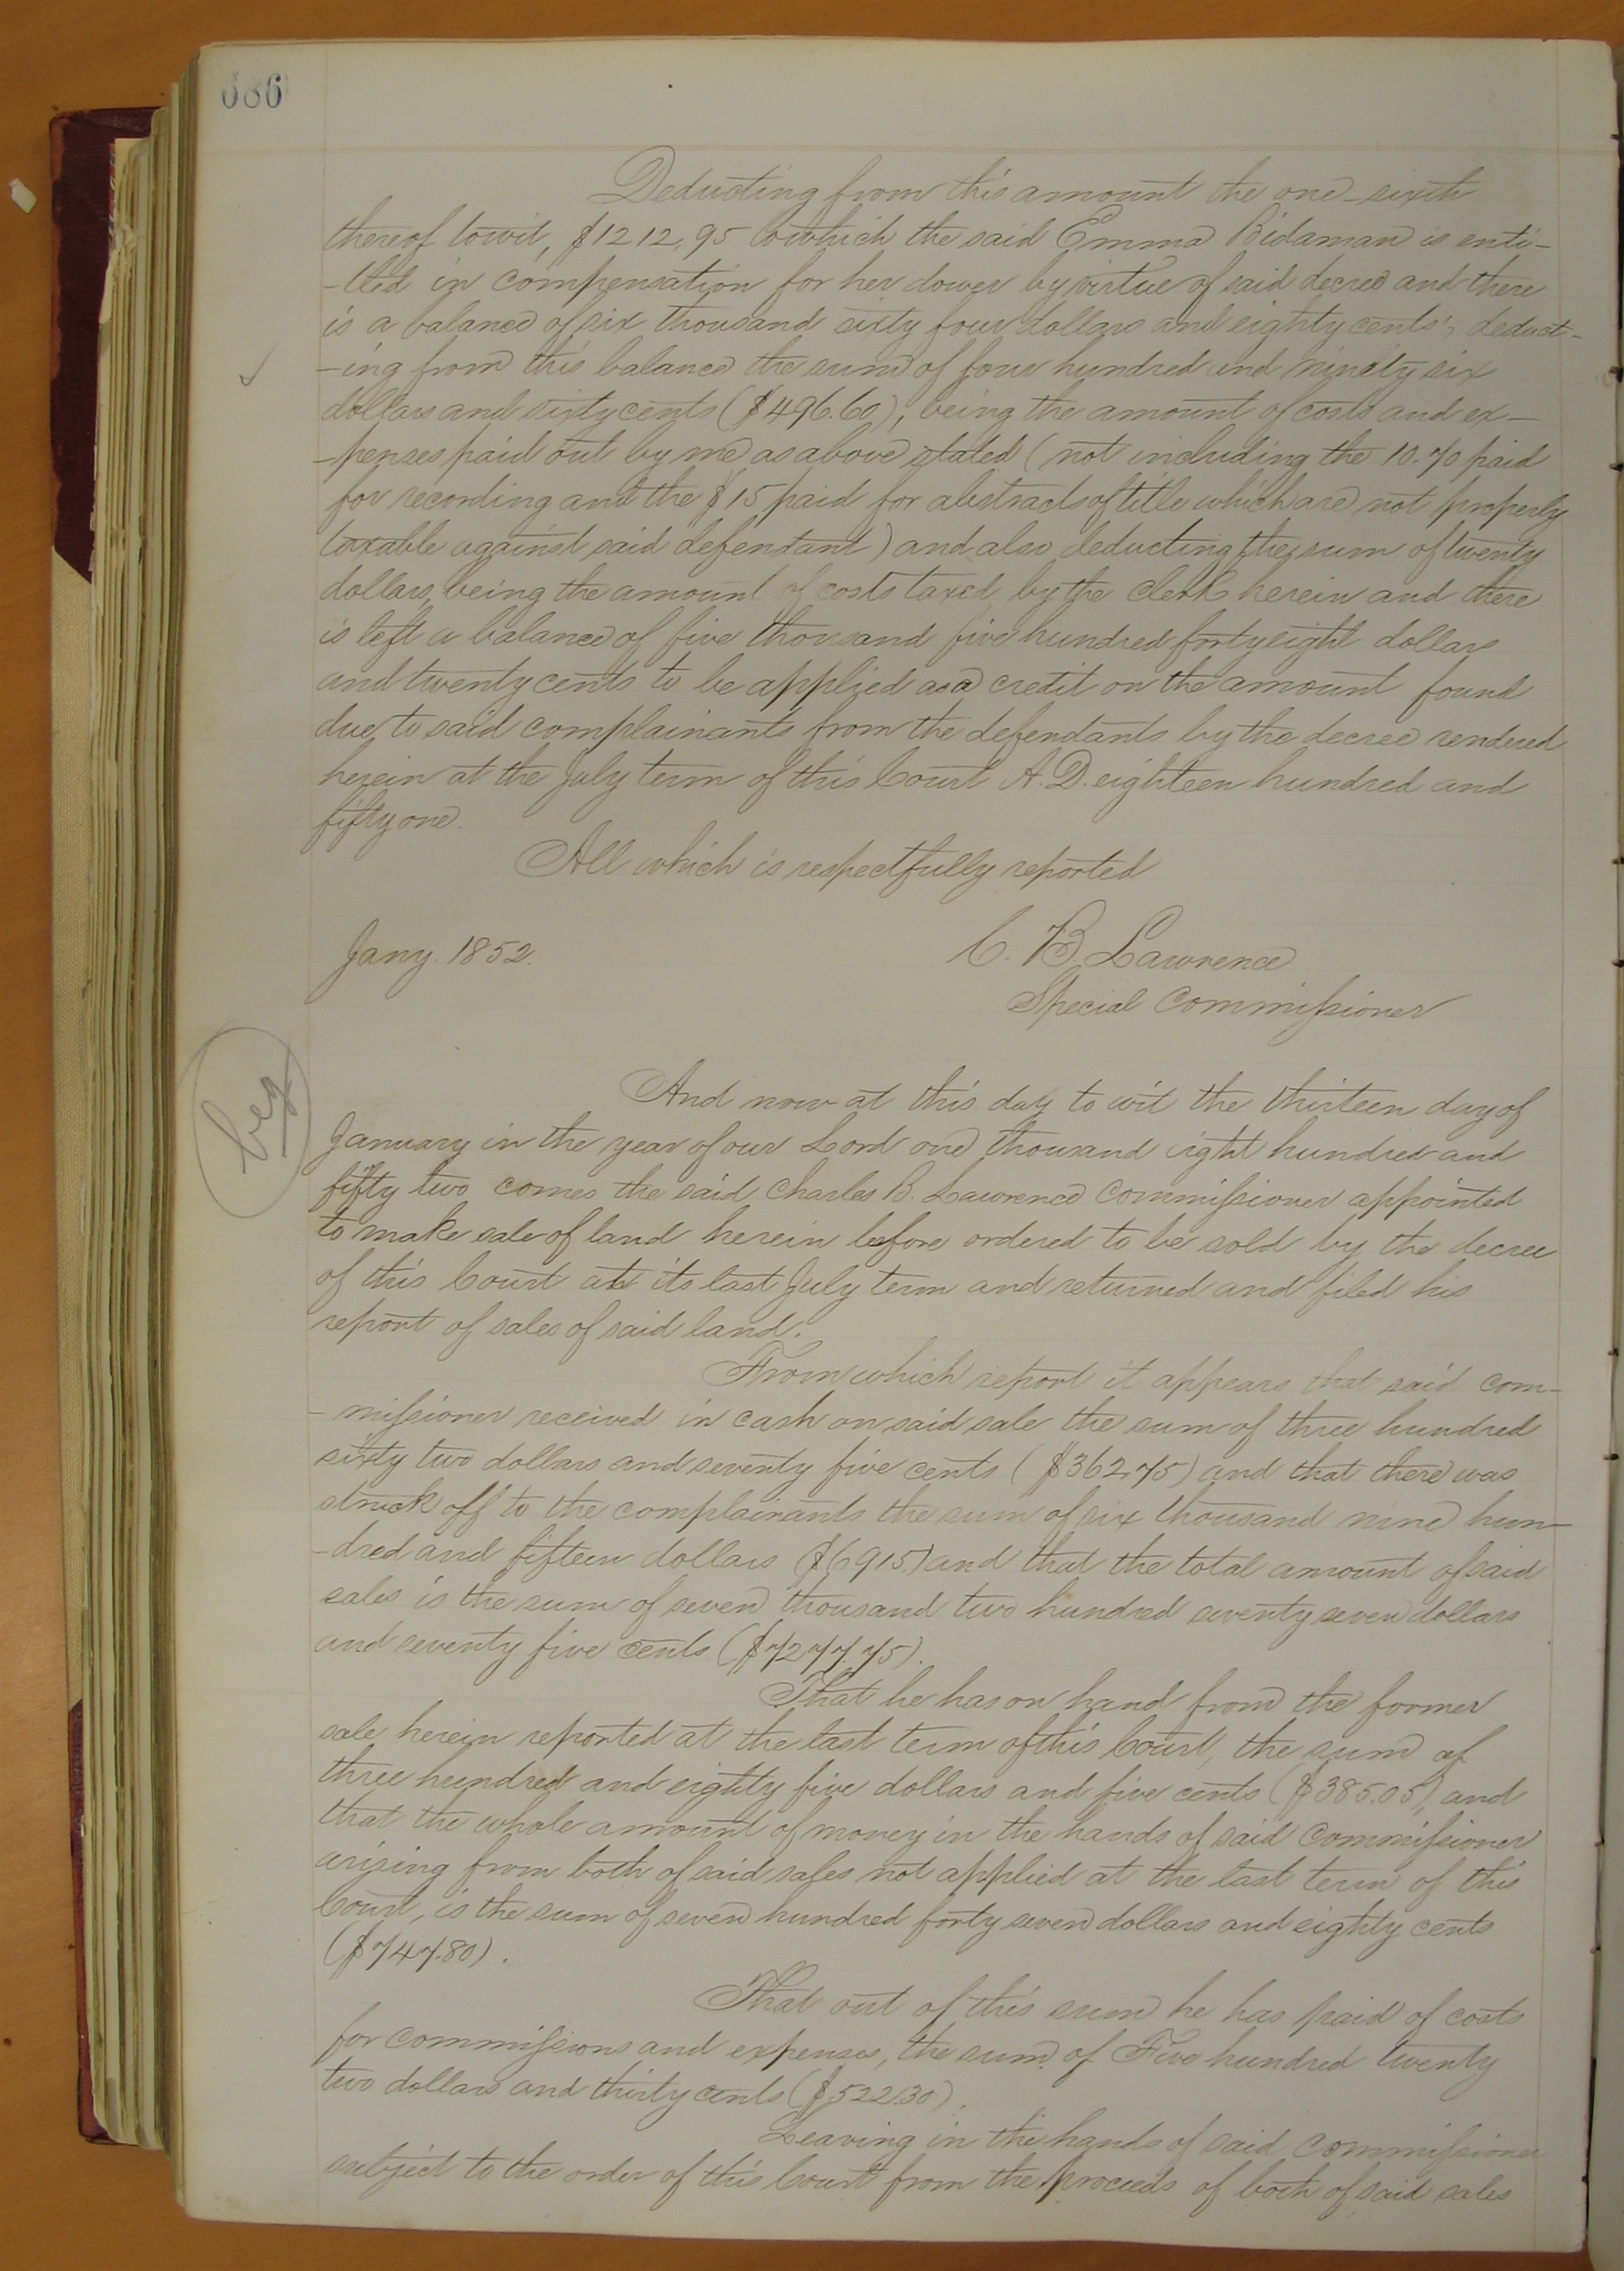 686
Deducting from this amount the one-sixth
thereof towit, $1212,95 to which the said Emma Bidaman is enti-
-tled in compensation for her dower by virtue of said decree and there
is a balance of six thousand sixty four dollars and eighty cents, deduct-
-ing from this balance the sum of four hundred and ninety six
dollars and sixty cents ($496.60), being the amount of costs and ex-
-penses paid out by me as above stated (not including the 10.70 paid
for recording and the $15 paid for abstracts of title which are not properly
taxable against said defendant) and also deducting the sum of twenty
dollars, being the amount of costs taxed by the clerk herein and there
is left a balance of five thousand five hundred forty eight dollars
and twenty cents to be applied as a credit on the amount found
due to said complainants from the defendants by the decree rendered
herein at the July term of this Court A.D. eighteen hundred and
fifty one.
All which is respectfully reported
Jany. 1852.
C. B. Lawrence
Special Commissioner
beg
And now at this day to wit the thirteen day of
January in the year of our Lord one thousand eight hundred and
fifty two comes the said Charles B. Lawrence Commissioner appointed
to make sale of land herein before ordered to be sold by the decree
of this Court at its last July term and returned and filed his
report of sales of said land.
From which report it appears that said com-
-missioner received in cash on said sale the sum of three hundred
sixty two dollars and seventy five cents ($362.75) and that there was
struck off to the complainants the sum of six thousand nine hun-
-dred and fifteen dollars ($6915.) and that the total amount of said
sales is the sum of seven thousand two hundred seventy seven dollars
and seventy five cents ($7277.75).
That he has on hand from the former
sale herein reported at the last term of this Court, the sum of
three hundred and eighty five dollars and five cents ($385.05), and
that the whole amount of money in the hands of said Commissioner
arising from both of said sales not applied at the last term of this
Court, is the sum of seven hundred forty seven dollars and eighty cents
($747.80).
That out of this sum he has paid of costs
for commissions and expenses, the sum of Five hundred twenty
two dollars and thirty cents ($522.30),
Leaving in the hands of said Commissioner
subject to the order of this Court from the proceeds of both of said sales